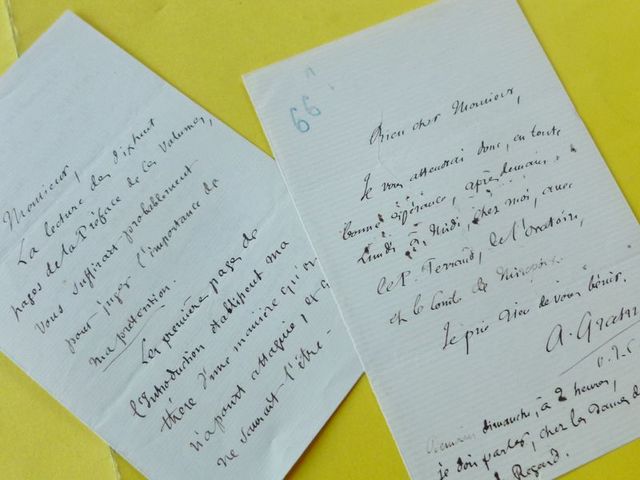 Monsieur,
La lecture des dixhuit
pages de la Préface de ces Volumes,
vous suffirait probablement
pour juger l'importance de
ma prétention.
Les premières pages de
l'Introduction établissent ma
thèse d'une manière qu'on
n'a point attaquée, et q
ne saurait l'être.
66
Bien cher Monsieur,
Je vous attendrai donc, en toute
bonne espérance, après demain,
Lundi à Midi, chez moi, avec
le P. Perraud, de l'Oratoire,
et le Comte de
Je prie Dieu de vous bénir.
A. Gratry
Demain dimanche, à 2 heures,
je dois parler, chez les Dames d
Regard.